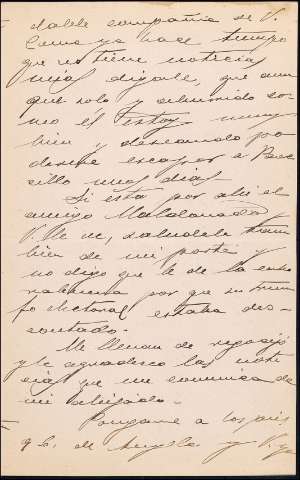 dable compañia de V.
Como ya hace tiempo
que no tiene noticias
mias digale, que aun
que solo y aburrido co-
mo el estoy muy
bien y deseando po-
derme escapar a
unos dias
Si está por ahi el
amigo Maldonado y
V. le ve, saludele tam-
bien de mi parte y
no digo que le de la enho-
rabuena por que su triun-
fo electoral estaba des-
contado.
Me llenan de regocijo
y le agradezco las noti-
cias que me comunica de
mi ahijado.
Pongame a los pies
q. b. de y V. ya